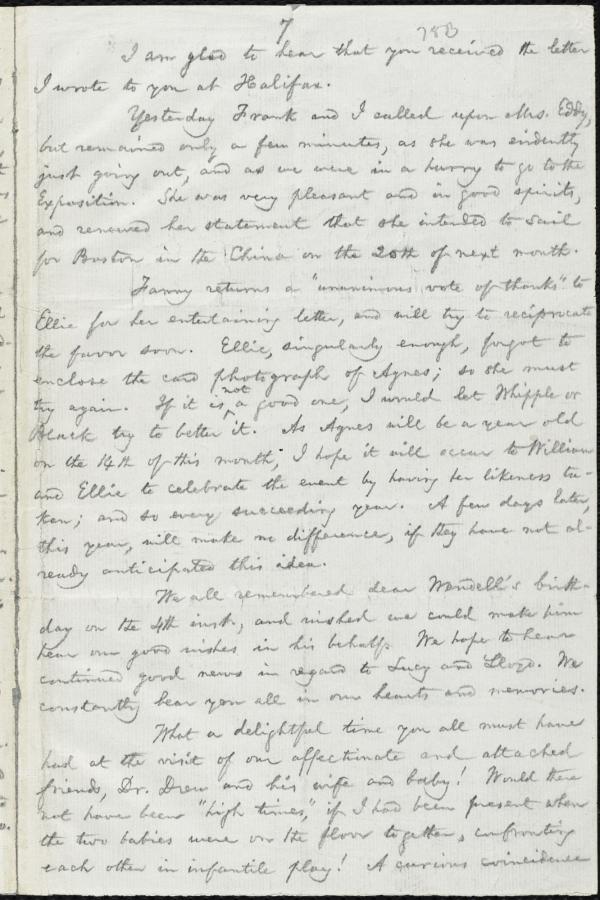 7
78B
I am glad to hear that you received the letter
I wrote to you at Halifax.
Yesterday Frank and I called upon Mrs. Eddy,
but remained only a few minutes, as she was evidently
just going out, and as we were in a hurry to go to the
Exposition. She was very pleasant and in good spirits,
and renewed her statement that she intended to sail
for Boston in the China on the 20th of next month.
Fanny returns a "unanimous vote of thanks" to
Ellie for her entertaining letter, and will try to reciprocate
the favor soon. Ellie, singularly enough, forgot to
enclose the card photograph of Agnes; so she must
try again. If it is not a good one, I would let Whipple or
Black try to better it. As Agnes will be a year old
on the 14th of this month, I hope it will occur to William
and Ellie to celebrate the event by having her likeness ta-
ken; and so every succeeding year. A few days later,
this year, will make no difference, if they have not al-
ready anticipated this idea.
We all remembered dear Wendell's birth-
day on the 4th inst., and wished we could make him
hear our good wishes in his behalf. We hope to hear
continued good news in regard to Lucy and Lloyd. We
constantly bear you all in our hearts and memories.
What a delightful time you all must have
had at the visit of our affectionate and attached
friends, Dr. Drew and his wife and baby! Would there
not have been "high times," if I had been present when
the two babies were on the floor together, confronting
each other in infantile play! A curious coincidence